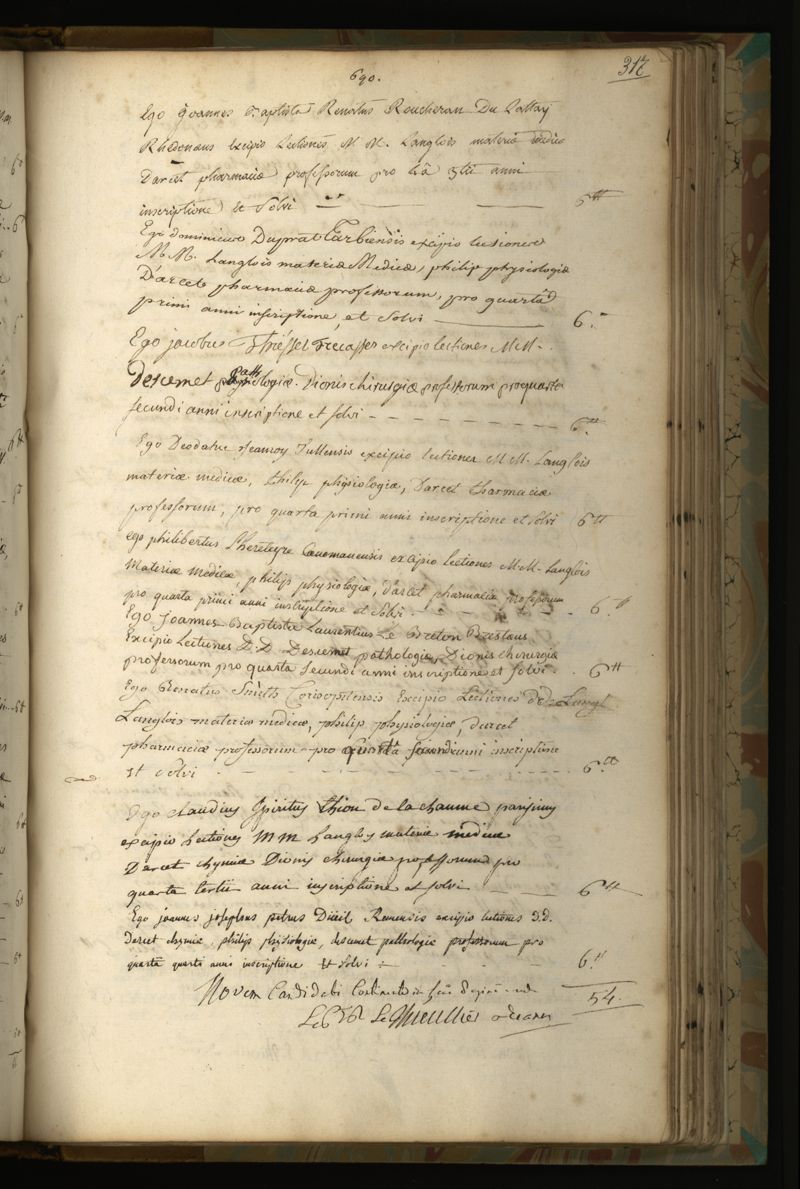 690.
317
Ego Joannes Baptista Renatus Roucheran Du Lattay
Rhedonaus excipio Lectiones M M. Langlois materiæ medicæ
Darcet pharmaciæ professorum pro 4â 3tii anni
inscriptione et Solvi 6tt
Ego dominicus Duprat Tarbiensis excipio lectiones
M. M. Langlois materiæ Medicæ, philip physiologiæ
D'arcet pharmaciæ professorum, pro quartâ
primi anni inscriptione, et solvi 6.
Ego jacobus Thiesset Trecasses excipio lectiones M.M.
Descemet pathologiæ. Dionis chirurgiæ professorum pro quarta
secundi anni inscriptione et solvi 6tt
Ego Deodatus Jeanroy Tullensis excipio lectiones M.M. Langlois
materiæ medicæ, philip physiologiæ, Darcet Pharmaciæ
professorum, pro quarta primi anni inscriptione et Solvi 6tt
ego philibertus Cænomanensis excipio lectiones M.M. Langlois
Materiæ medicæ, philip physiologiæ, d'arcet pharmaciæ professorum
pro quarta primi anni inscriptione et Solvi 6tt
Ego Joannes Baptista Laurentius Le Breton
Excipio Lectiones D.D Descemet pathologiæ, Dionis chirurgiæ
professorum pro quarta Secundi anni inscriptione et solvi. 6tt
Ego Renatus Smith Corisopitensis Excipio Lectiones d.d. Langl
Langlois materiæ medicæ, philip physiologiæ, darcet
pharmaciæ professorum pro quarta secundi anni inscriptione
et Solvi 6tt
Ego claudius Spiritus thion de la chaume parisinus
excipio Lectiones MM Langloys materiæ medicæ
Darcet chymiæ Dionis chirurgiæ professorum pro
quarta tertii anni inscriptione et solvi 6tt
Ego joannes josephus petrus Remensis excipio lectiones D.D.
Darcet chymiæ, philip physiologiæ, descemet pathologiæ professorum pro
quartâ quarti anni inscriptione et Solvi 6tt
Novem Candidati 54.
Le Thieullier decanus